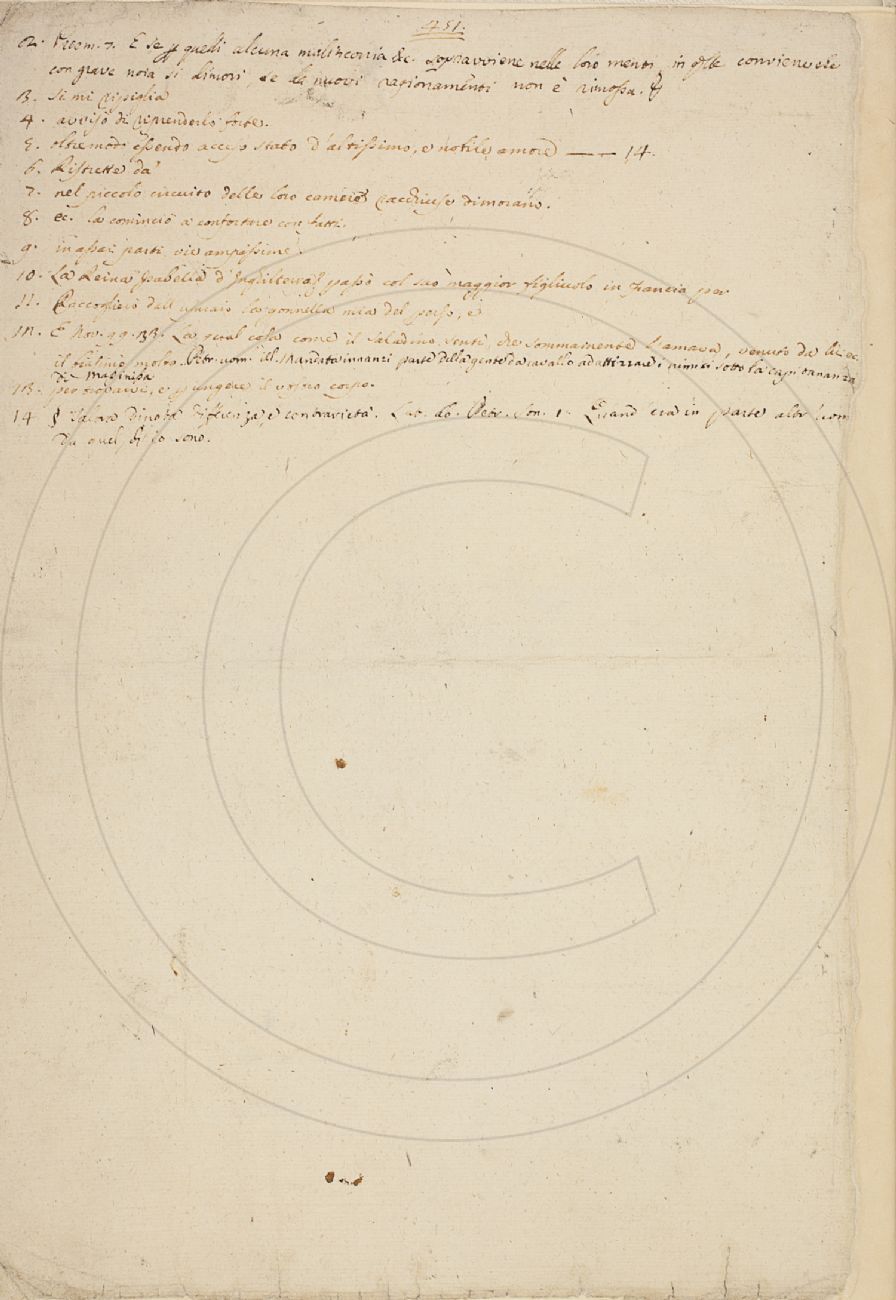 251.
2. Proem. 7. E se p quelli alcuna malinconia &c. sopravviene nelle loro menti, in qste conviene che
con grave noia si dimori, se da nuovi ragionamenti non è rimossa.
3. Si mi ripiglia
4. avviso di riprenderlo forte.
5. oltremodo essendo acceso stato d'altissimo, e nobile amore —— 14.
6. Ristrette da'
7. nel piccolo circuito delle loro camere racchiuse dimorano.
8. ec. la cominciò a confortare con fatti.
9. in assai parti vie ampissime.
10. La Reina Isabella d'Inghilterra passò col suo maggior figliuolo in Francia per
11. Raccoglierò dall' usciaio la gonnella mia del perso, e
12. E Nov. 99. 33. La qual cosa come il Saladino sentì, che sommamente l'amava, venuto da lui ec.
il stimò molto. Petr. uom. ill. Mandata innanzi parte della gente da cavallo ad attizzare i nimici sotto la capitananza
di Masinissa
13. per, e pungere il vostro corpo.
14 § Talora dinota differenza, e contrarietà. Lat. ab. Petr. Son. 1. Quand' era in parte altr' uom
da quel, ch' io sono.